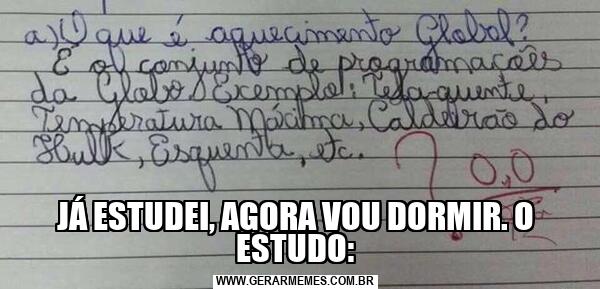 a) O que é aquecimento Global?
É o conjunto de programações
da Globo. Exemplo: Tela-quente,
Temperatura Máxima, Caldeirão do
Hulk, Esquenta, etc. ? 0,0
JÁ ESTUDEI, AGORA VOU DORMIR. O
ESTUDO:
WWW.GERARMEMES.COM.BR